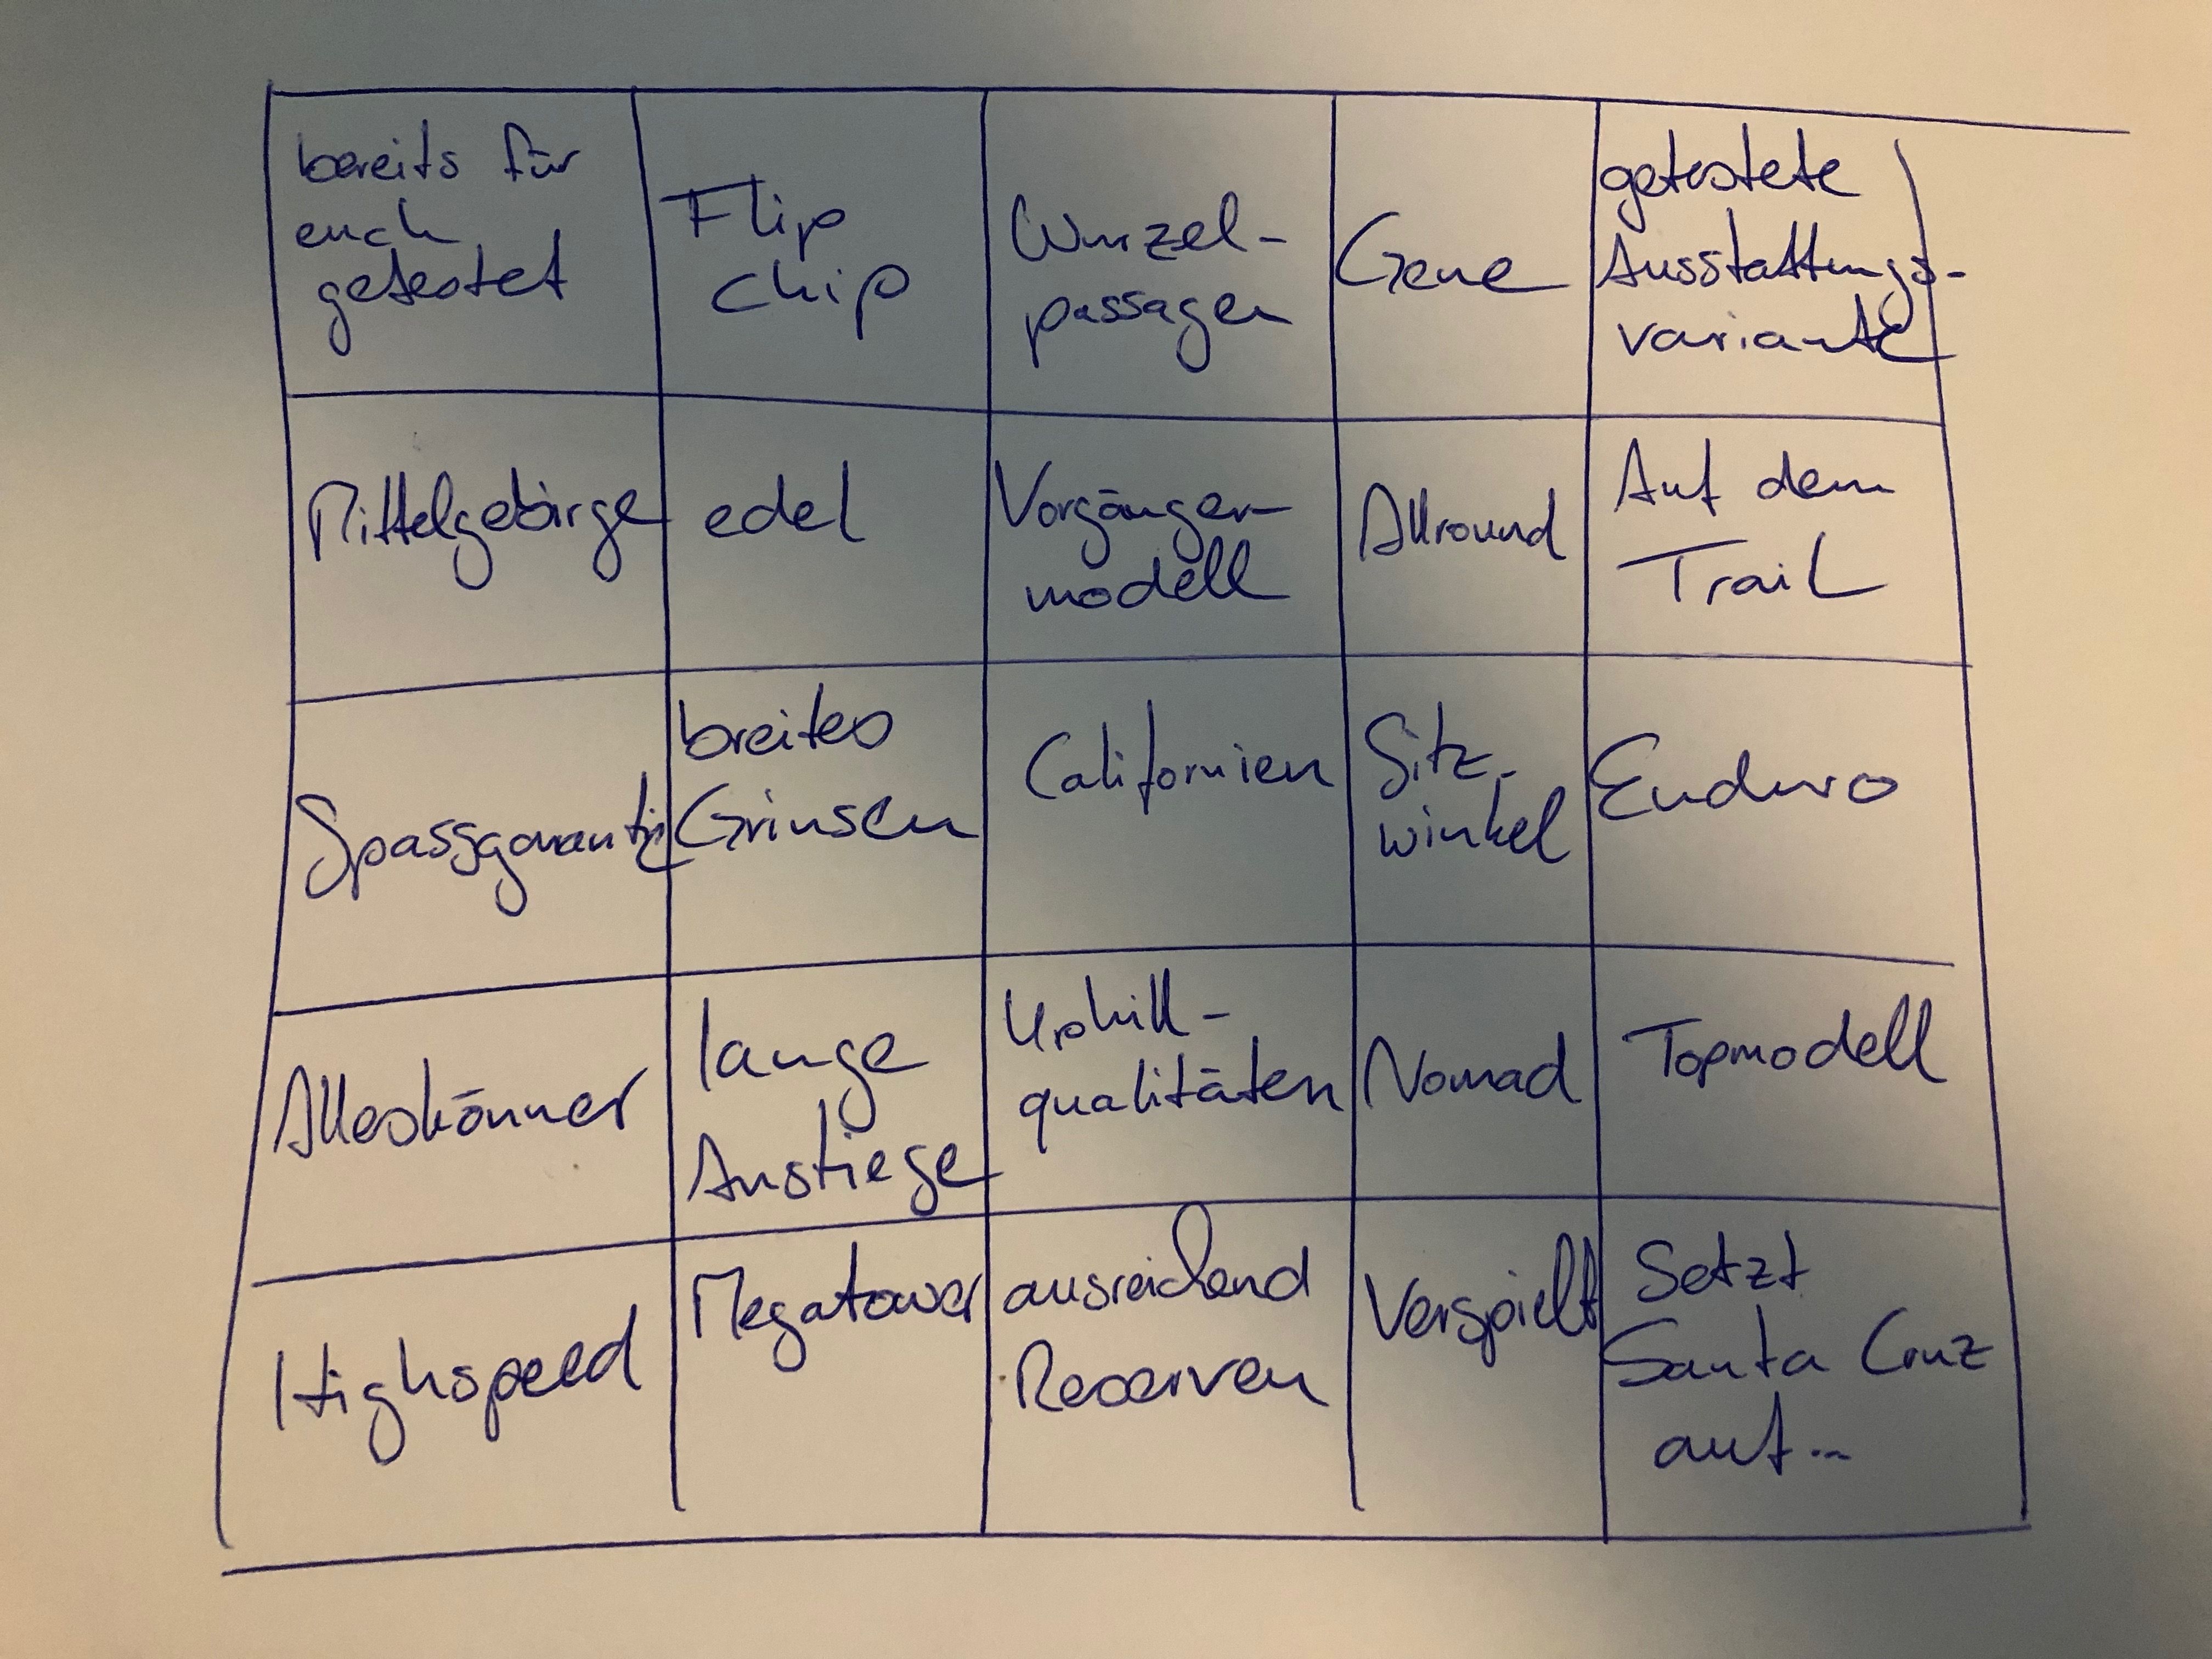 bereits für
euch
getestet
Flip
Chip
Wurzel-
passagen
Gene
getestete
Ausstattungs-
variante
Mittelgebirge
edel
Vorgänger-
modell
Allround
Auf dem
Trail
Spassgarantie
breites
Grinsen
Californien
Sitz-
winkel
Enduro
Alleskönner
lange
Anstiege
Uphill-
qualitäten
Nomad
Topmodell
Highspeed
Megatower
ausreichend
Reserven
Verspielt
Setzt
Santa Cruz
auf...